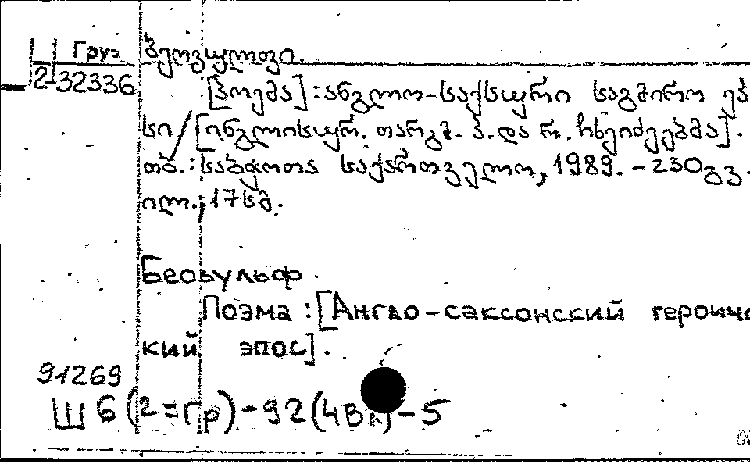 Груз ბეოვულფი.
2-32336
[პოემა] : ანგლო-საქსური საგმირო ეპ
სი / [ინგლისურ. თარგმ. პ. და რ. ჩხეიძეებმა]. -
თბ. : საბჭოთა საქართველო, 1989. - 230გვ.
ილ.; 17სმ.
Беовульф.
Поэма : [Англо-саксонский героиче
кий эпос].
91269
Ш 6 (2=Гр)-92(4Вл)-5